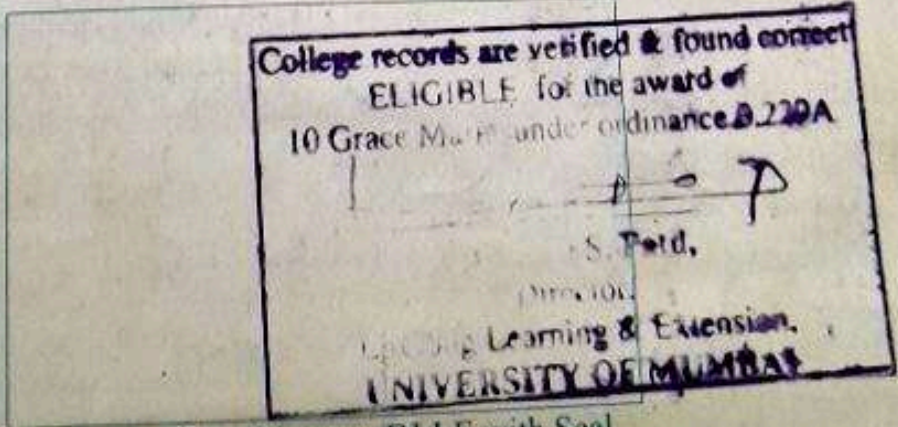 College records are verified & found correct
ELIGIBLE for the award of
10 Grace Marks under ordinance 0.229A
S.
Director,
Learning & Extension,
UNIVERSITY OF MUMBAI
with Seal